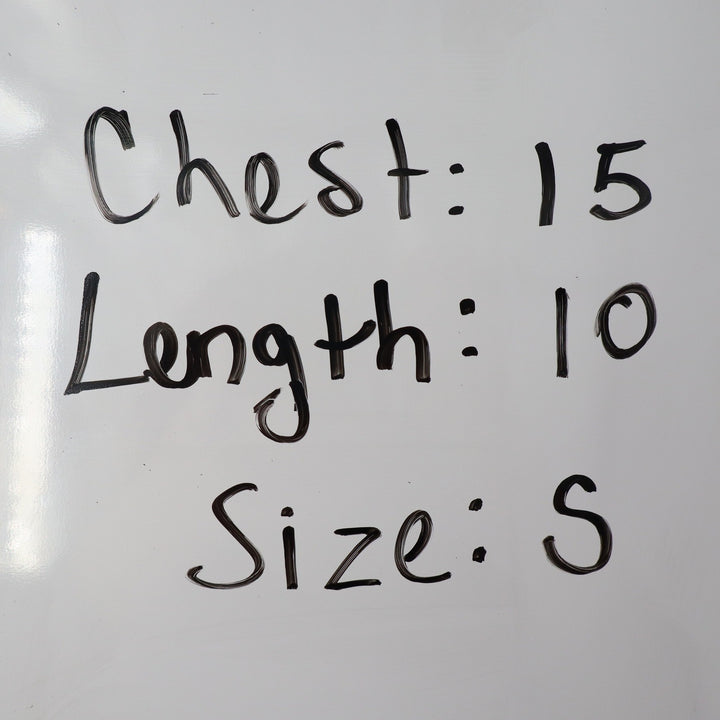 Chest: 15
Length: 10
Size: S